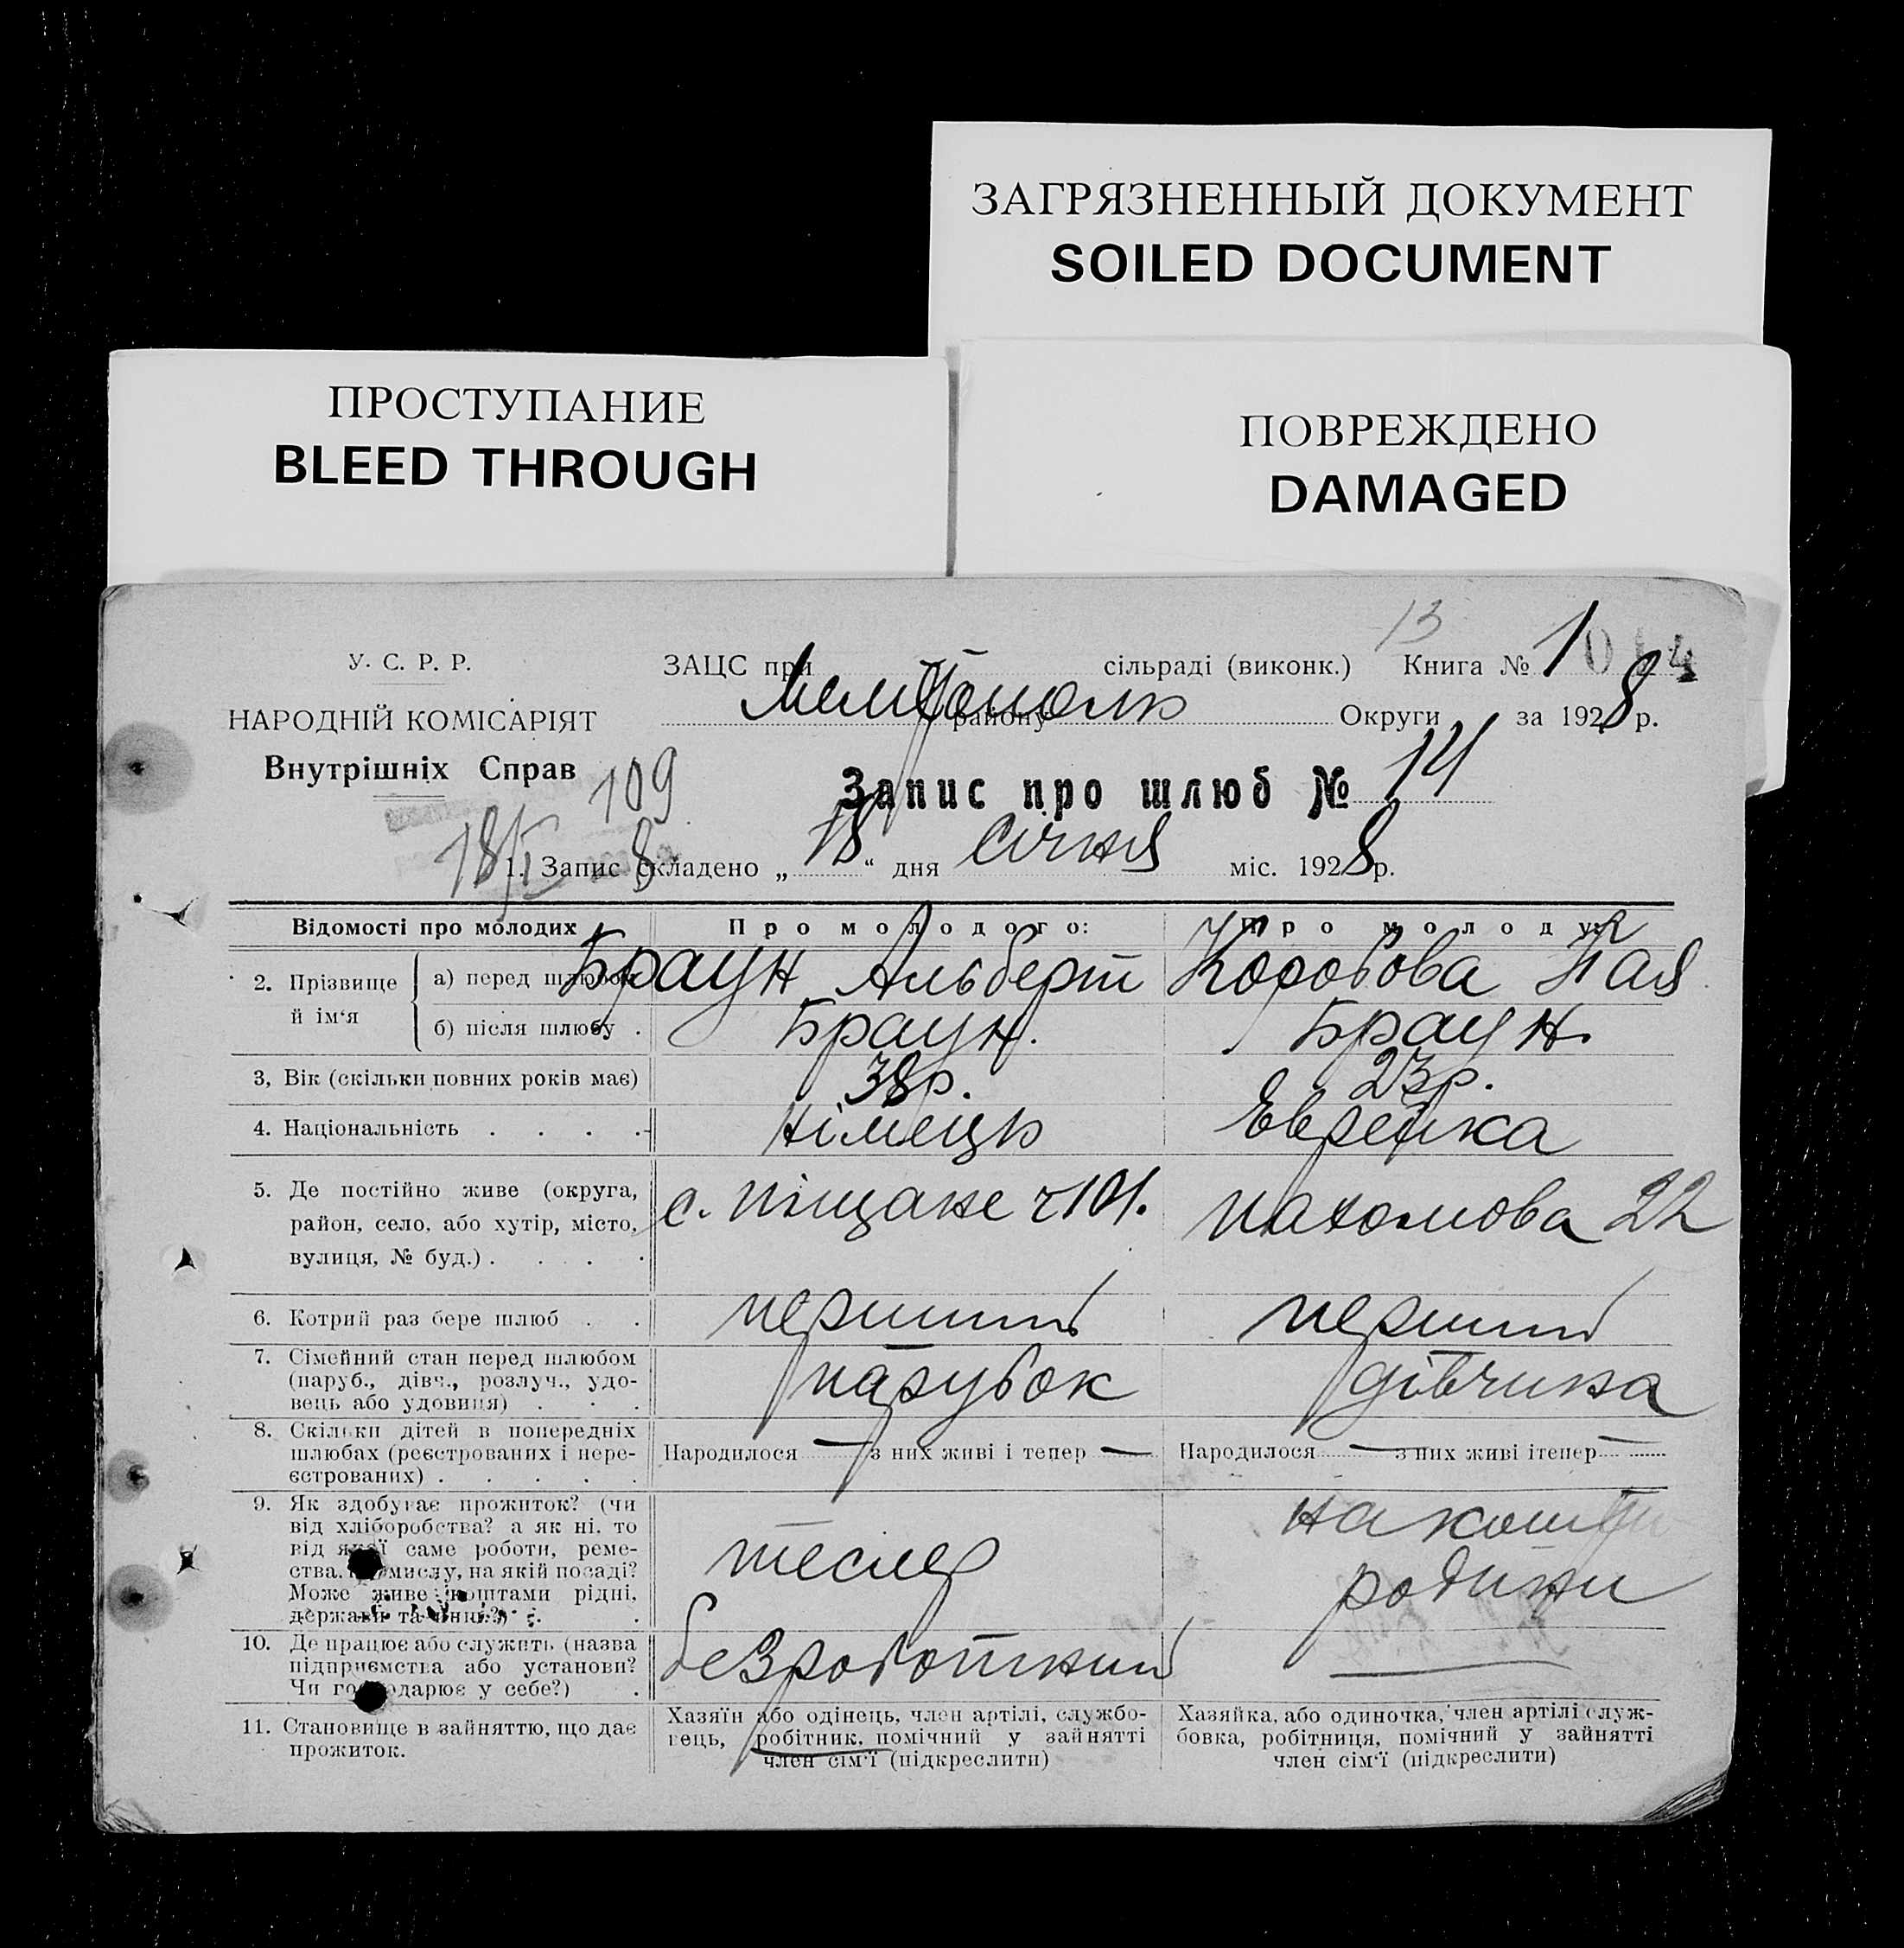 ЗАГРЯЗНЕННЫЙ ДОКУМЕНТ
SOILED DOCUMENT
ПРОСТУПАНИЕ
BLEED THROUGH
ПОВРЕЖДЕНО
DAMAGED
13
У. С. Р. Р.
НАРОДНІЙ КОМІСАРІЯТ
Внутрішніх Справ
109
18/I 8
ЗАЦС при сільраді (виконк.) Книга № 1
Мелітополь району Округи за 1928 р.
Запис про шлюб № 14
1. Запис складено „18“ дня січня міс. 1928 р.
Відомості про молодих Про молодого: Про молоду:
2. Прізвище й ім‘я
а) перед шлюбом Браун Альберт
б) після шлюбу . Браун. Браун.
3, Вік (скільки повних років має) 38р. 23р.
4. Національність . . . . Німець Еврейка
5. Де постійно живе (округа,
район, село, або хутір, місто,
вулиця, № буд.) . . . .
с. Піщане 22
6. Котрий раз бере шлюб . . перший перший
7. Сімейний стан перед шлюбом
(паруб., дівч., розлуч., удо-
вець або удовиця) . . .
парубок дівчина
8. Скільки дітей в попередніх
шлюбах (реєстрованих і нере-
єстрованих) . . . . .
Народилося — з них живі і тепер —
Народилося — з них живі ітепер —
9. Як здобуває прожиток? (чи
від хліборобства? а як ні, то
від якої саме роботи, реме-
ства, промислу, на якій посаді?
Може живе коштами рідні,
держави та инш.?) . .
тесляр
на кошти
родини
10. Де працює або служить (назва
підприємства або установи?
Чи господарює у себе?) .
безроботний —
11. Становище в зайняттю, що дає
прожиток.
Хазяїн або одінець, член артілі, службо-
вець, робітник, помічний у зайнятті
член сім‘ї (підкреслити)
Хазяйка, або одиночка, член артілі служ-
бовка, робітниця, помічний у зайнятті
член сім‘ї (підкреслити)